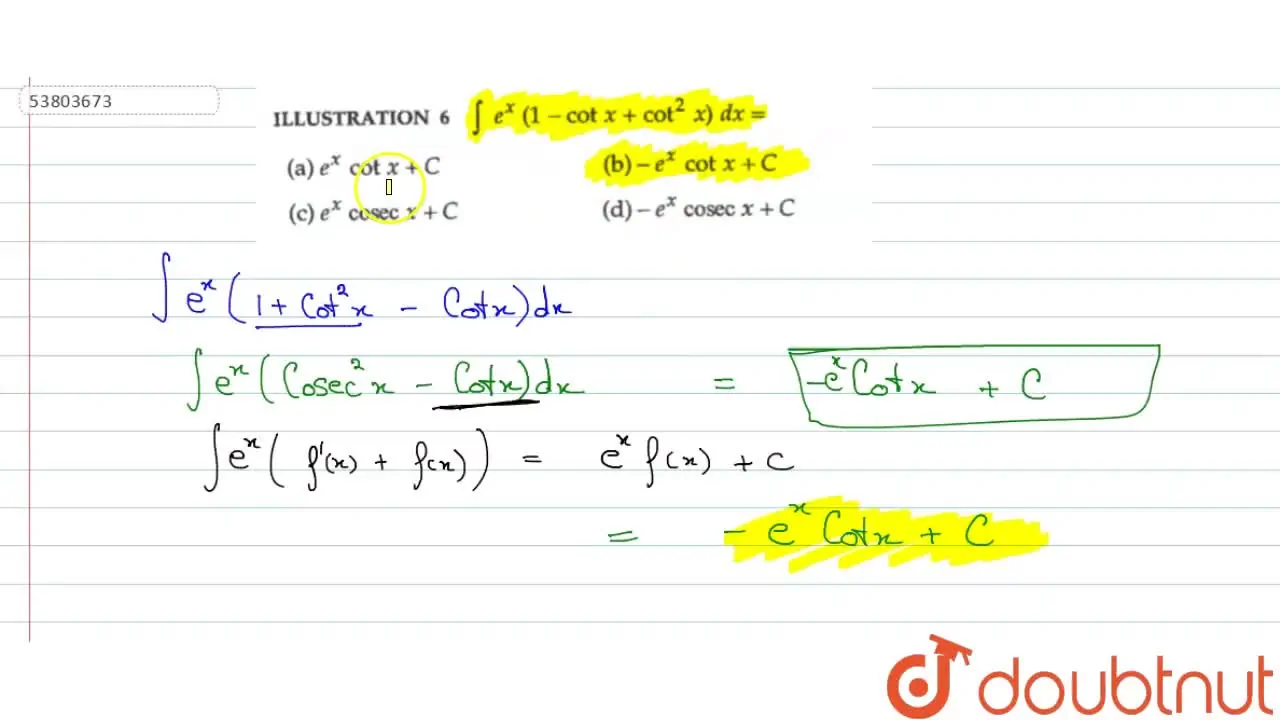 53803673
ILLUSTRATION 6 ∫ eˣ (1 – cot x + cot² x) dx =
(a) eˣ cot x + C (b) – eˣ cot x + C
(c) eˣ cosec x + C (d) – eˣ cosec x + C
∫ eˣ (1 + Cot²x – Cotx) dx
∫ eˣ (Cosec²x – Cotx) dx = –eˣ Cotx + C
∫ eˣ ( f'(x) + f(x) ) = eˣ f(x) + C
= – eˣ Cotx + C
doubtnut